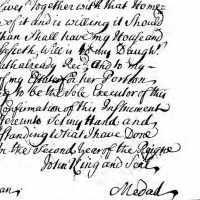 Lives Together with that Home=
n of it and is willing it Should
han Shall have my House and
Wife is to my Daugh
hath already Rec'd and to my
of my Her Portion
to be the Sole Executor of this
Confirmation of this Instrument
Hereunto Set my Hand and
Standing what I have Done
n the Second Year of the Reign
John King and Seal
an
Medad